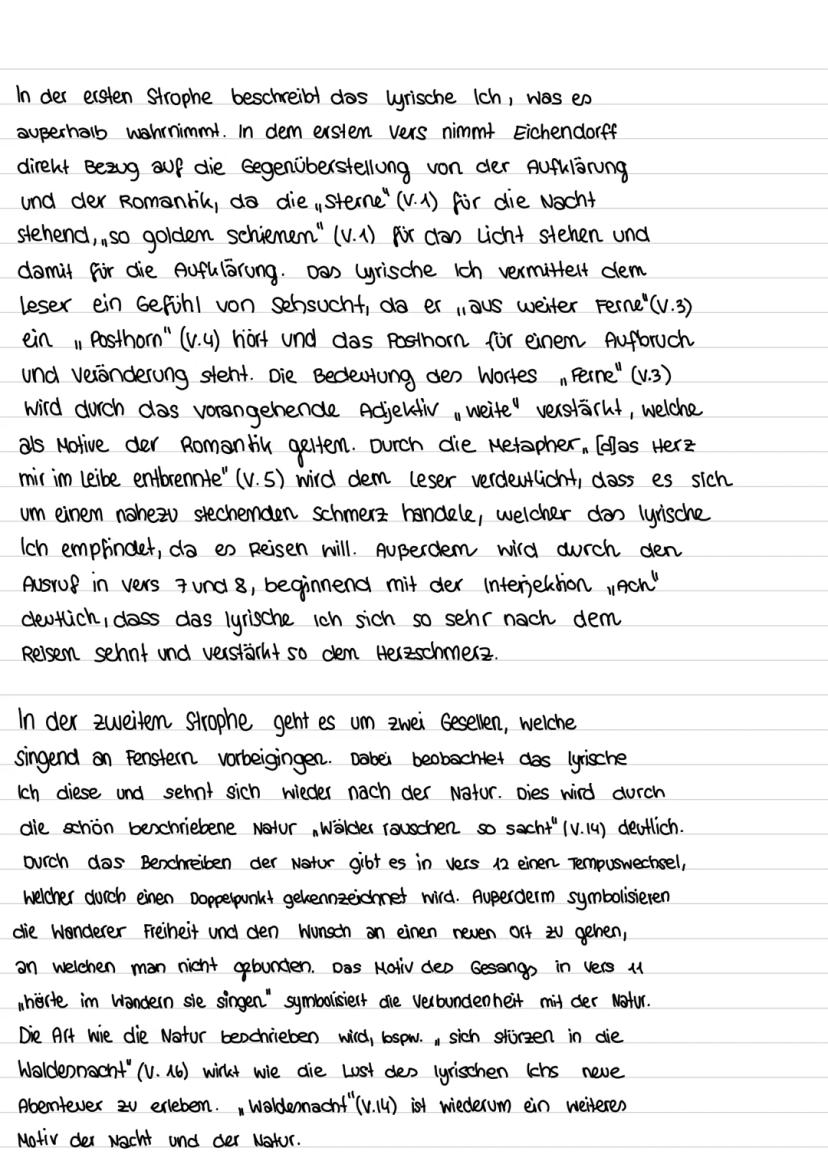 In der ersten Strophe beschreibt das lyrische Ich, was es
außerhalb wahrnimmt. In dem ersten Vers nimmt Eichendorff
direkt Bezug auf die Gegenüberstellung von der Aufklärung
und der Romantik, da die „Sterne" (V.1) für die Nacht
stehend, „so golden schienen" (V.1) für das Licht stehen und
damit für die Aufklärung. Das lyrische Ich vermittelt dem
Leser ein Gefühl von Sehsucht, da er „aus weiter Ferne" (V.3)
ein „Posthorn" (V.4) hört und das Posthorn für einem Aufbruch
und Veränderung steht. Die Bedeutung des Wortes „Ferne" (V.3)
wird durch das vorangehende Adjektiv „weite" verstärkt, welche
als Motive der Romantik gelten. Durch die Metapher „[d]as Herz
mir im Leibe entbrennte" (V.5) wird dem Leser verdeutlicht, dass es sich
um einem nahezu stechenden Schmerz handele, welcher das lyrische
Ich empfindet, da es Reisen will. Außerdem wird durch den
Ausruf in Vers 7 und 8, beginnend mit der Interjektion „Ach"
deutlich, dass das lyrische Ich sich so sehr nach dem
Reisen sehnt und verstärkt so dem Herzschmerz.
In der zweitem Strophe geht es um zwei Gesellen, welche
singend an Fenstern vorbeigingen. Dabei beobachtet das lyrische
Ich diese und sehnt sich wieder nach der Natur. Dies wird durch
die schön beschriebene Natur „Wälder rauschen so sacht" (V.14) deutlich.
Durch das Beschreiben der Natur gibt es in Vers 12 einen Tempuswechsel,
welcher durch einen Doppelpunkt gekennzeichnet wird. Außerderm symbolisieren
die Wanderer Freiheit und den Wunsch an einen neuen Ort zu gehen,
an welchen man nicht gebunden. Das Motiv des Gesangs in Vers 11
„hörte im Wandern sie singen" symbolisiert die Verbundenheit mit der Natur.
Die Art wie die Natur beschrieben wird, bspw. „sich stürzen in die
Waldesnacht" (V.16) wirkt wie die Lust des lyrischen Ichs neue
Abenteuer zu erleben. „Waldesnacht" (V.14) ist wiederum ein weiteres
Motiv der Nacht und der Natur.